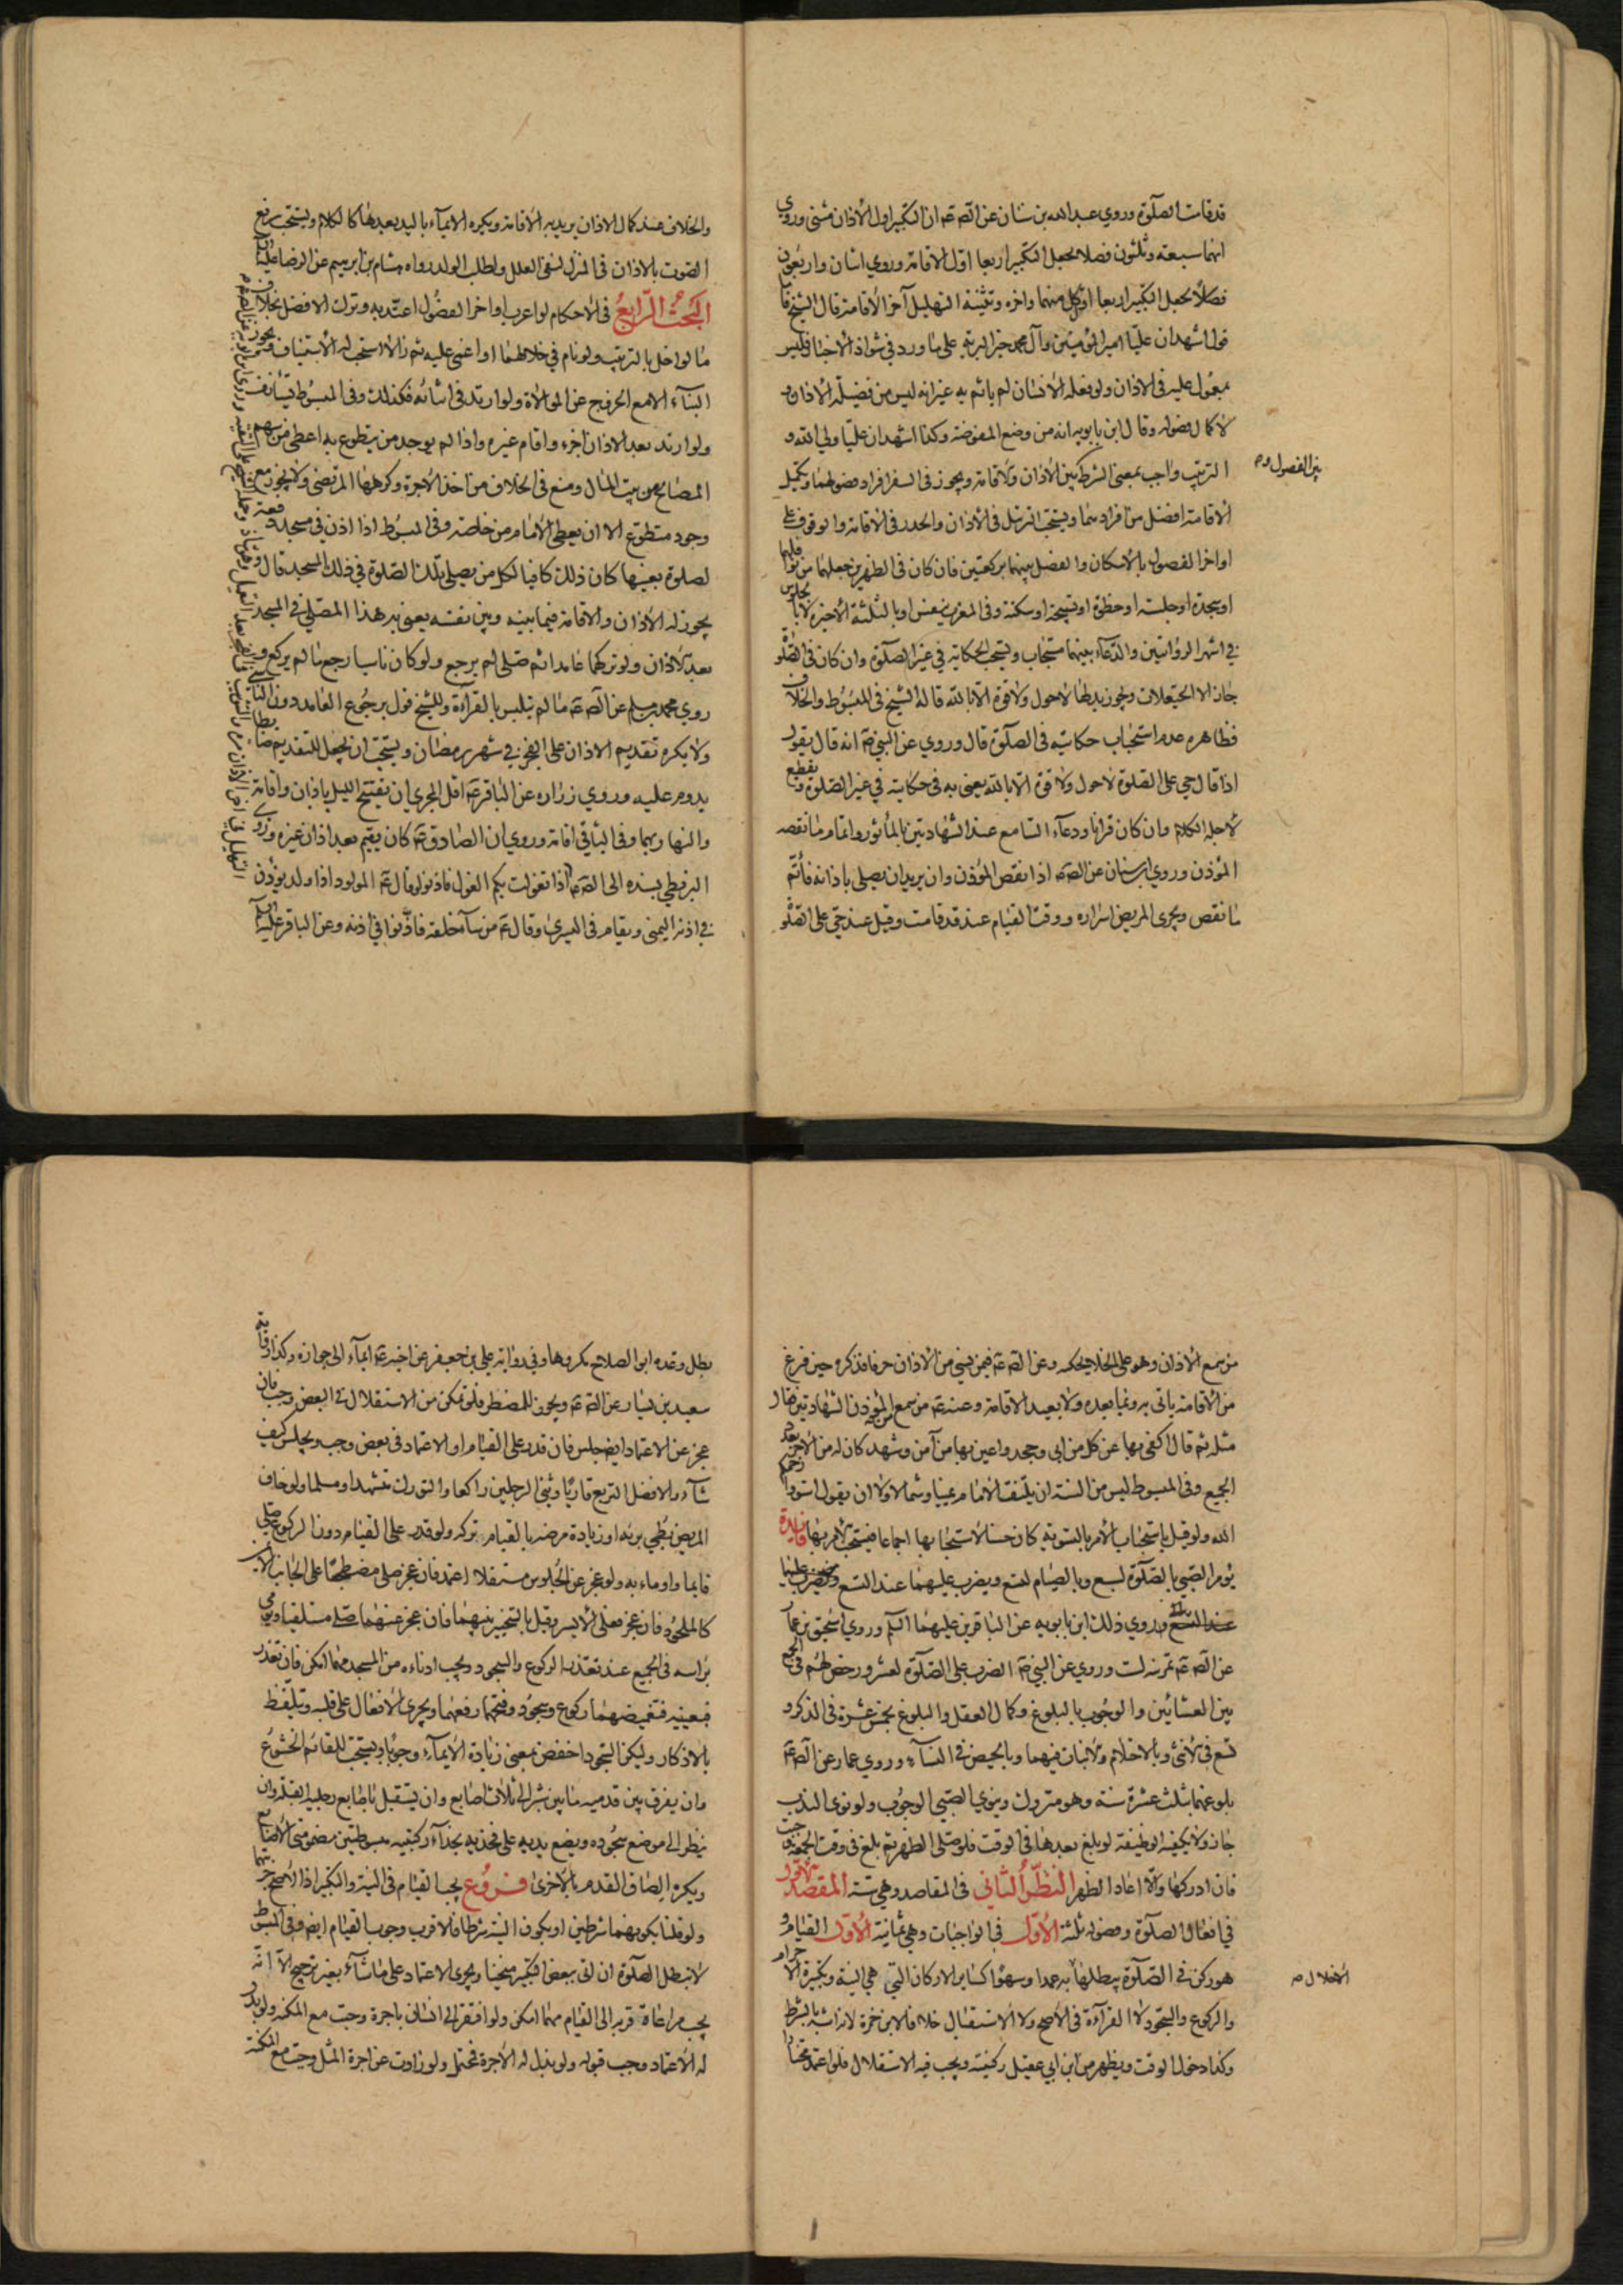 قد قامت الصلوة وروي عبد الله بن سنان عن الصه عه ان التكبير اول الأذان مثنى وروي
انها سبعة وثلثون فصلا بجعل التكبير اربعا اول الاقامة وروي اثنان واربعون
فصلا بجعل التكبير اربعا اول كل منهما واخره وتثنية التهليل آخر الأقامة قال الشيخ فاما
قول اشهد ان عليا امير المؤمنين وآل محمد خير البرية على ما ورد في شواذ الأخبار فليس
بمعمول عليه في الاذان ولو فعله الأنسان لم يأثم به غير انه ليس من فضيلة الأذان و
لا كمال فصوله وقال ابن بابويه انه من وضع المفوضة وكذا اشهد ان عليا ولي الله و
الترتيب واجب بمعنى الشرط بين الأذان والاقامة ويجوز في السفر افراد فصولهما وتكميل
بين الفصول وص
الأقامة افضل من افرادهما ويستحب الترتل في الأذان والحدر في الأقامة والوقوف على
اواخر الفصول بالأسكان والفصل بينهما بركعتين فان كان في الظهرين جعلهما من نوافلها
او سجدة او جلسة او خطوة او تسبيحة او سكتة وفي المغرب بنفس او بالثلثة الأخيرة لا بالجلوس
في اشهر الروايتين والدعاء بينهما مستجاب ويستحب الحكاية في غير الصلوة وان كان في الصلوة
جاز الا الحيعلات ويجوز بدلها لا حول ولا قوة الا بالله قاله الشيخ في المبسوط والخلاف
فظاهره عدم استحباب حكايته في الصلوة قال وروي عن النبي ص انه قال يقول
اذا قال حي على الصلوة لا حول ولا قوة الا بالله يعني به في حكايته في غير الصلوة ويقطع
لأجله الكلام وان كان قرانا ودعاء السامع عند الشهادتين بالمأثور واتمام ما نقصه
المؤذن وروي ابن سنان عن الصه عه اذا نقص المؤذن وان يريد ان يصلي باذانه فأتم
ما نقص ويجزي المريض اسراره ووقت القيام عند قد قامت وقيل عند حي على الصلوة
والخلاف عند كمال الاذان يريد به الاقامة ويكره الايماء باليد بعدها كالكلام ويستحب رفع
الصوت بالاذان في المنزل لنفي العلل ولطلب الولد رواه هشام بن ابرهيم عن الرضا عليه السلام
البحث الرابع في الأحكام لو اعرب اواخر الفصول اعتد به وترك الافضل بخلاف
ما لو اخل بالترتيب ولو نام في خلالهما او اغمي عليه ثم زالا استحب له الأستيناف ويجوز
البناء الامع الخروج عن الموالاة ولو ارتد في اثنائه فكذلك وفي المبسوط يستأنف
ولو ارتد بعد الاذان اجزء واقام غيره واذا لم يوجد من يتطوع به اعطي من سهم
المصالح من بيت المال ومنع في الخلاف من اخذ الأجرة وكرهها المرتضى ولا يجوز مع
وجود متطوع الا ان يعطي الأمام من خاصته وفي المبسوط اذا اذن في مسجد دفعة
لصلوة بعينها كان ذلك كافيا لكل من يصلي تلك الصلوة في ذلك المسجد قال و
يجوز له الأذان والاقامة فيما بينه وبين نفسه يعني به هذا المصلي في المسجد
بعد الأذان ولو تركهما عامدا ثم صلى لم يرجع ولو كان ناسيا رجع ما لم يركع و
روي محمد بن مسلم عن الصه عه ما لم يتلبس بالقراءة وللشيخ قول برجوع العامد دون الناسي
ولا يكره تقديم الاذان على الفجر في شهر رمضان ويستحب ان يجعل للتقديم ضابطا
يدوم عليه وروي زراره عن الباقر عه اقل المجزي ان تفتتح الليل باذان واقامة
والنهار بهما وفي الباقي اقامة وروي ان الصادق عه كان يقيم بعد اذان غيره وروي
البزنطي بسنده الى الصه عه اذا تغولت بكم الغول فاذنوا وقال عه المولود اذا ولد يؤذن
في اذنه اليمنى ويقام في اليسرى وقال عه من ساء خلقه فاذنوا في اذنه وعن الباقر عليه السلام
من سمع الأذان وهو على الخلاء يحكه وعن الصه عه فيمن نسي من الاذان حرفا فذكره حين فرغ
من الأقامة ياتي به وبما بعده ولا يعيد الاقامة وعنه عه من سمع المؤذن الشهادتين فقال
مثله ثم قال اكفي بها عن كل من ابى وجحد واعين بها من آمن وشهد كان له من الأجر بعدد
الجميع وفي المبسوط ليس من السنة ان يلتفت الأمام يمينا وشمالا ولا ان يقول استووا رحمكم
الله ولو قيل باستحباب الأمر بالتسوية كان حسنا لاستحبابها اجماعا فيستحب الأمر بها فايدة
يؤمر الصبي بالصلوة لسبع وبالصيام لتسع ويضرب عليهما عند التسع
وروي ذلك ابن بابويه عن الباقرين عليهما السلم وروي اسحق بن عمار
عن الصه عه تمرينه لست وروي عن النبي ص الضرب على الصلوة لعشر ورخص لهم في الجمع
بين العشائين والوجوب بالبلوغ وكمال العقل والبلوغ بخمس عشرة في الذكر و
تسع في الأنثى وبالاحتلام والانبات فيهما وبالحيض في النساء وروي عمار عن الصه عه
بلوغهما ثلث عشرة سنة وهو متروك وينوي الصبي الوجوب ولو نوى الندب
جاز ولا يكفيه الوظيفة لو بلغ بعدها في الوقت فلو صلى الظهر ثم بلغ في وقت الجمعة وجبت
فان ادركها والا اعاد الظهر النظر الثاني في المقاصد وهي ستة المقصد الأول
في افعال الصلوة وفصوله ثلثة الأول في الواجبات وهي ثمانية الأول القيام و
هو ركن في الصلوة يبطلها به عمدا وسهوا كساير الاركان التي هي النية وتكبيرة الاحرام
الاخلال ص
والركوع والسجود لا القراءة في الأصح ولا الاستقبال خلافا لابن حمزة لانه اشبه بالشرط
وكذا دخول الوقت ويظهر من ابن ابي عقيل ركنيته ويجب فيه الاستقلال فلو اعتمد مختارا
بطل وعده ابو الصلاح مكروها وفي رواية علي بن جعفر عن اخيه عه ايماء الى جوازه وكذا رواية
سعيد بن يسار عن الصه عه ويجوز للمضطر فلو تمكن من الاستقلال في البعض وجب فان
عجز عن الاعتماد ايضا جلس فان قدر على القيام او الاعتماد في بعض وجب ويجلس كيف
شاء والافضل التربع قاريا وثني الرجلين راكعا والتورك متشهدا ومسلما ولو خاف
المريض بطي برئه او زيادة مرضه بالقيام تركه ولو قدر على القيام دون الركوع صلى
قايما واوماء به ولو عجز عن الجلوس مستقلا اعتمد فان عجز صلى مضطجعا على الجانب الأيمن
كالملحود فان عجز فعلى الأيسر وقيل بالتخيير بينهما فان عجز عنهما صلى مستلقيا ويومي
براسه في الجميع عند تعذر الركوع والسجود ويجب ادناءه من المسجد مهما امكن فان تعذر
فبعينيه فتغميضهما ركوع وسجود وفتحهما رفعهما ويجري الأفعال على قلبه ويتلفظ
بالاذكار وليكن السجود اخفض بمعنى زيادة الأيماء وجوبا ويستحب للقائم الخشوع
وان يفرق بين قدميه ما بين شبر الى ثلاث اصابع وان يستقبل باصابع رجليه القبلة وان
ينظر الى موضع سجوده ويضع يديه على فخذيه بحذاء ركبتيه مبسوطتين مضمومتي الأصابع
ويكره الصاق القدم بالأخرى فروع يجب القيام في النية والتكبير اذ الأصح جزئيتها
ولو قلنا بكونهما شرطين او بكون النية شرطا فالاقرب وجوب القيام ايضا وفي المبسوط
لا تبطل الصلوة ان اتى ببعض التكبير منحنيا ويجزي الاعتماد على ما شاء بغير ترجيح الا انه
يجب مراعاة قربه الى القيام مهما امكن ولو افتقر الى انسان باجرة وجبت مع المكنة ولو بذل
له الأعتماد وجب قبوله ولو بذل له الأجرة فمحتمل ولو زادت عن اجرة المثل وجبت مع المكنة